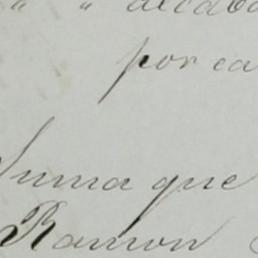 " " alcaba
por ca
Suma que
Ramon